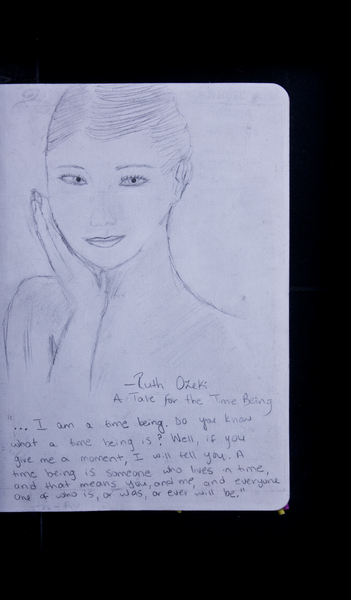 —Ruth Ozeki
A Tale for the Time Being
"... I am a time being. Do you know
what a time being is? Well, if you
give me a moment, I will tell you. A
time being is someone who lives in time,
and that means you, and me, and everyone
one of who is, or was, or ever will be."